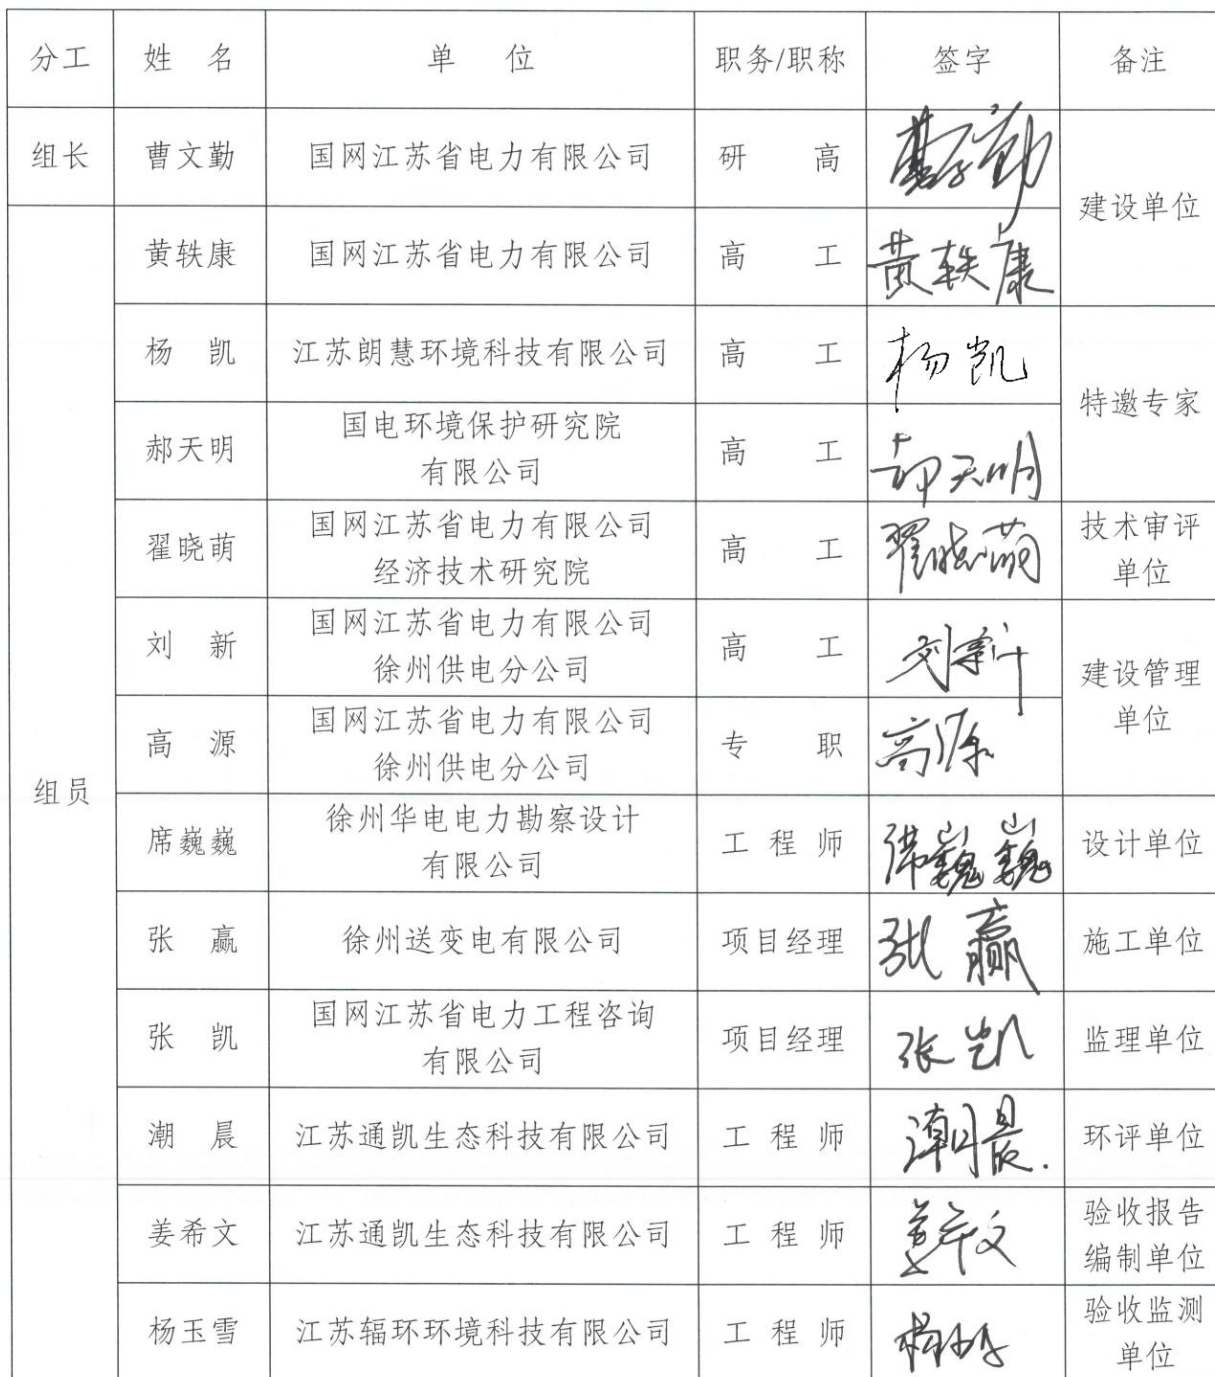 分工 姓 名 单 位 职务/职称 签字 备注
组长 曹文勤 国网江苏省电力有限公司 研 高 曹文勤
建设单位
黄轶康 国网江苏省电力有限公司 高 工 黄轶康
杨 凯 江苏朗慧环境科技有限公司 高 工 杨凯
特邀专家
郝天明 国电环境保护研究院
有限公司 高 工 郝天明
翟晓萌 国网江苏省电力有限公司
经济技术研究院 高 工 翟晓萌 技术审评
单位
刘 新 国网江苏省电力有限公司
徐州供电分公司 高 工 刘新
建设管理
单位
高 源 国网江苏省电力有限公司
徐州供电分公司 专 职 高源
组员
席巍巍 徐州华电电力勘察设计
有限公司 工 程 师 席巍巍 设计单位
张 赢 徐州送变电有限公司 项目经理 张赢 施工单位
张 凯 国网江苏省电力工程咨询
有限公司 项目经理 张凯 监理单位
潮 晨 江苏通凯生态科技有限公司 工 程 师 潮晨. 环评单位
姜希文 江苏通凯生态科技有限公司 工 程 师 姜希文 验收报告
编制单位
杨玉雪 江苏辐环环境科技有限公司 工 程 师 验收监测
单位